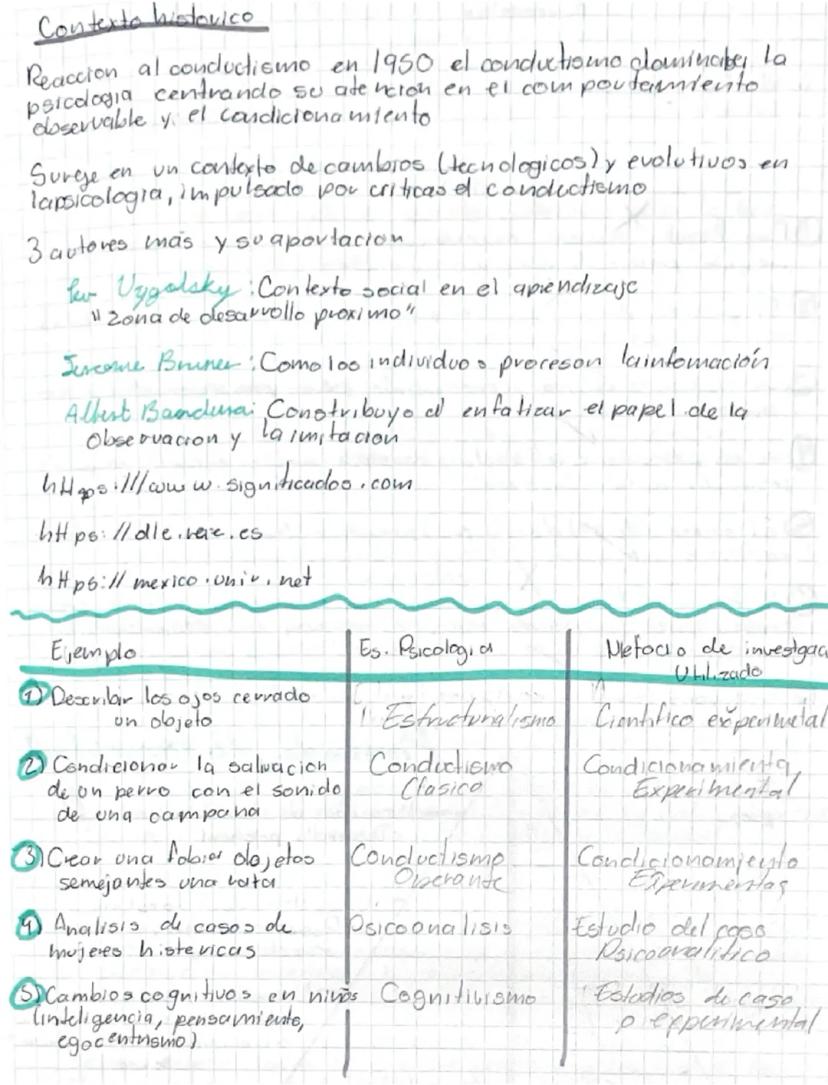 Contexto historico
Reaccion al conductismo en 1950 el conductismo dominaba la
psicologia centrando su atencion en el comportamiento
observable y el condicionamiento
Surege en un contexto de cambios (tecnologicos) y evolutivos en
lapsicologia, impulsado por criticas el conductismo
3 autores más y su aportacion
Lev Vygolsky: Contexto social en el aprendizaje
"Zona de desarrollo proximo"
Jerome Bruner: Como los individuos procesan la infomación
Albert Bandura: Constribuyo al enfatizar el papel de la
Observacion y la imitacion
https:///www.significados.com
https://dle.rae.es
https://mexico.univ.net
Ejemplo Es. Psicologia Metodo de investgac
Utilizado
1) Describir los ojos cerrado Estructuralismo Cientifico experimetal
un objeto
2) Condicionar la salvacion Conductismo Condicionamiento,
de un perro con el sonido Clasico Experimental
de una campana
3) Crear una fobia a objetos Conductismo Condicionamiento
semejantes una rata Operante Experimental
4) Analisis de casos de Psicoanalisis Estudio del caso
mujeres histericas Psicoanalitico
5) Cambios cognitivos en niños Cognitivismo Estudios de caso
(inteligencia, pensamiento, o experimental
egocentrismo)